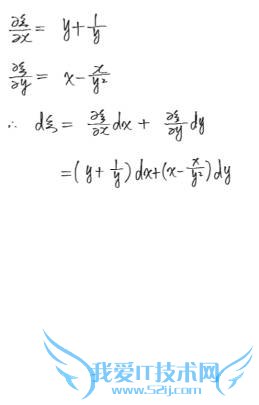 ∂ξ/∂x = y + 1/y
∂ξ/∂y = x - x/y²
∴ dξ = ∂ξ/∂x dx + ∂ξ/∂y dy
= (y + 1/y) dx + (x - x/y²) dy
我爱IT技术网
www.52ij.com